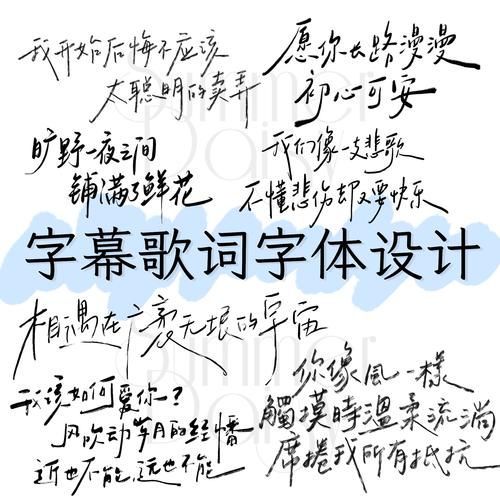 我开始后悔不应该
太聪明的卖弄
愿你长路漫漫
初心可安
旷野一夜之间
铺满了鲜花
我们像一支悲歌
不懂悲伤却又要快乐
字幕歌词字体设计
相遇在广袤无垠的宇宙
我该如何爱你?
风吹动岁月的经幡
近也不能,远也不能
你像風一樣
觸摸時溫柔流淌
席捲我所有抵抗
Summer
Daisy
Summer
Daisy